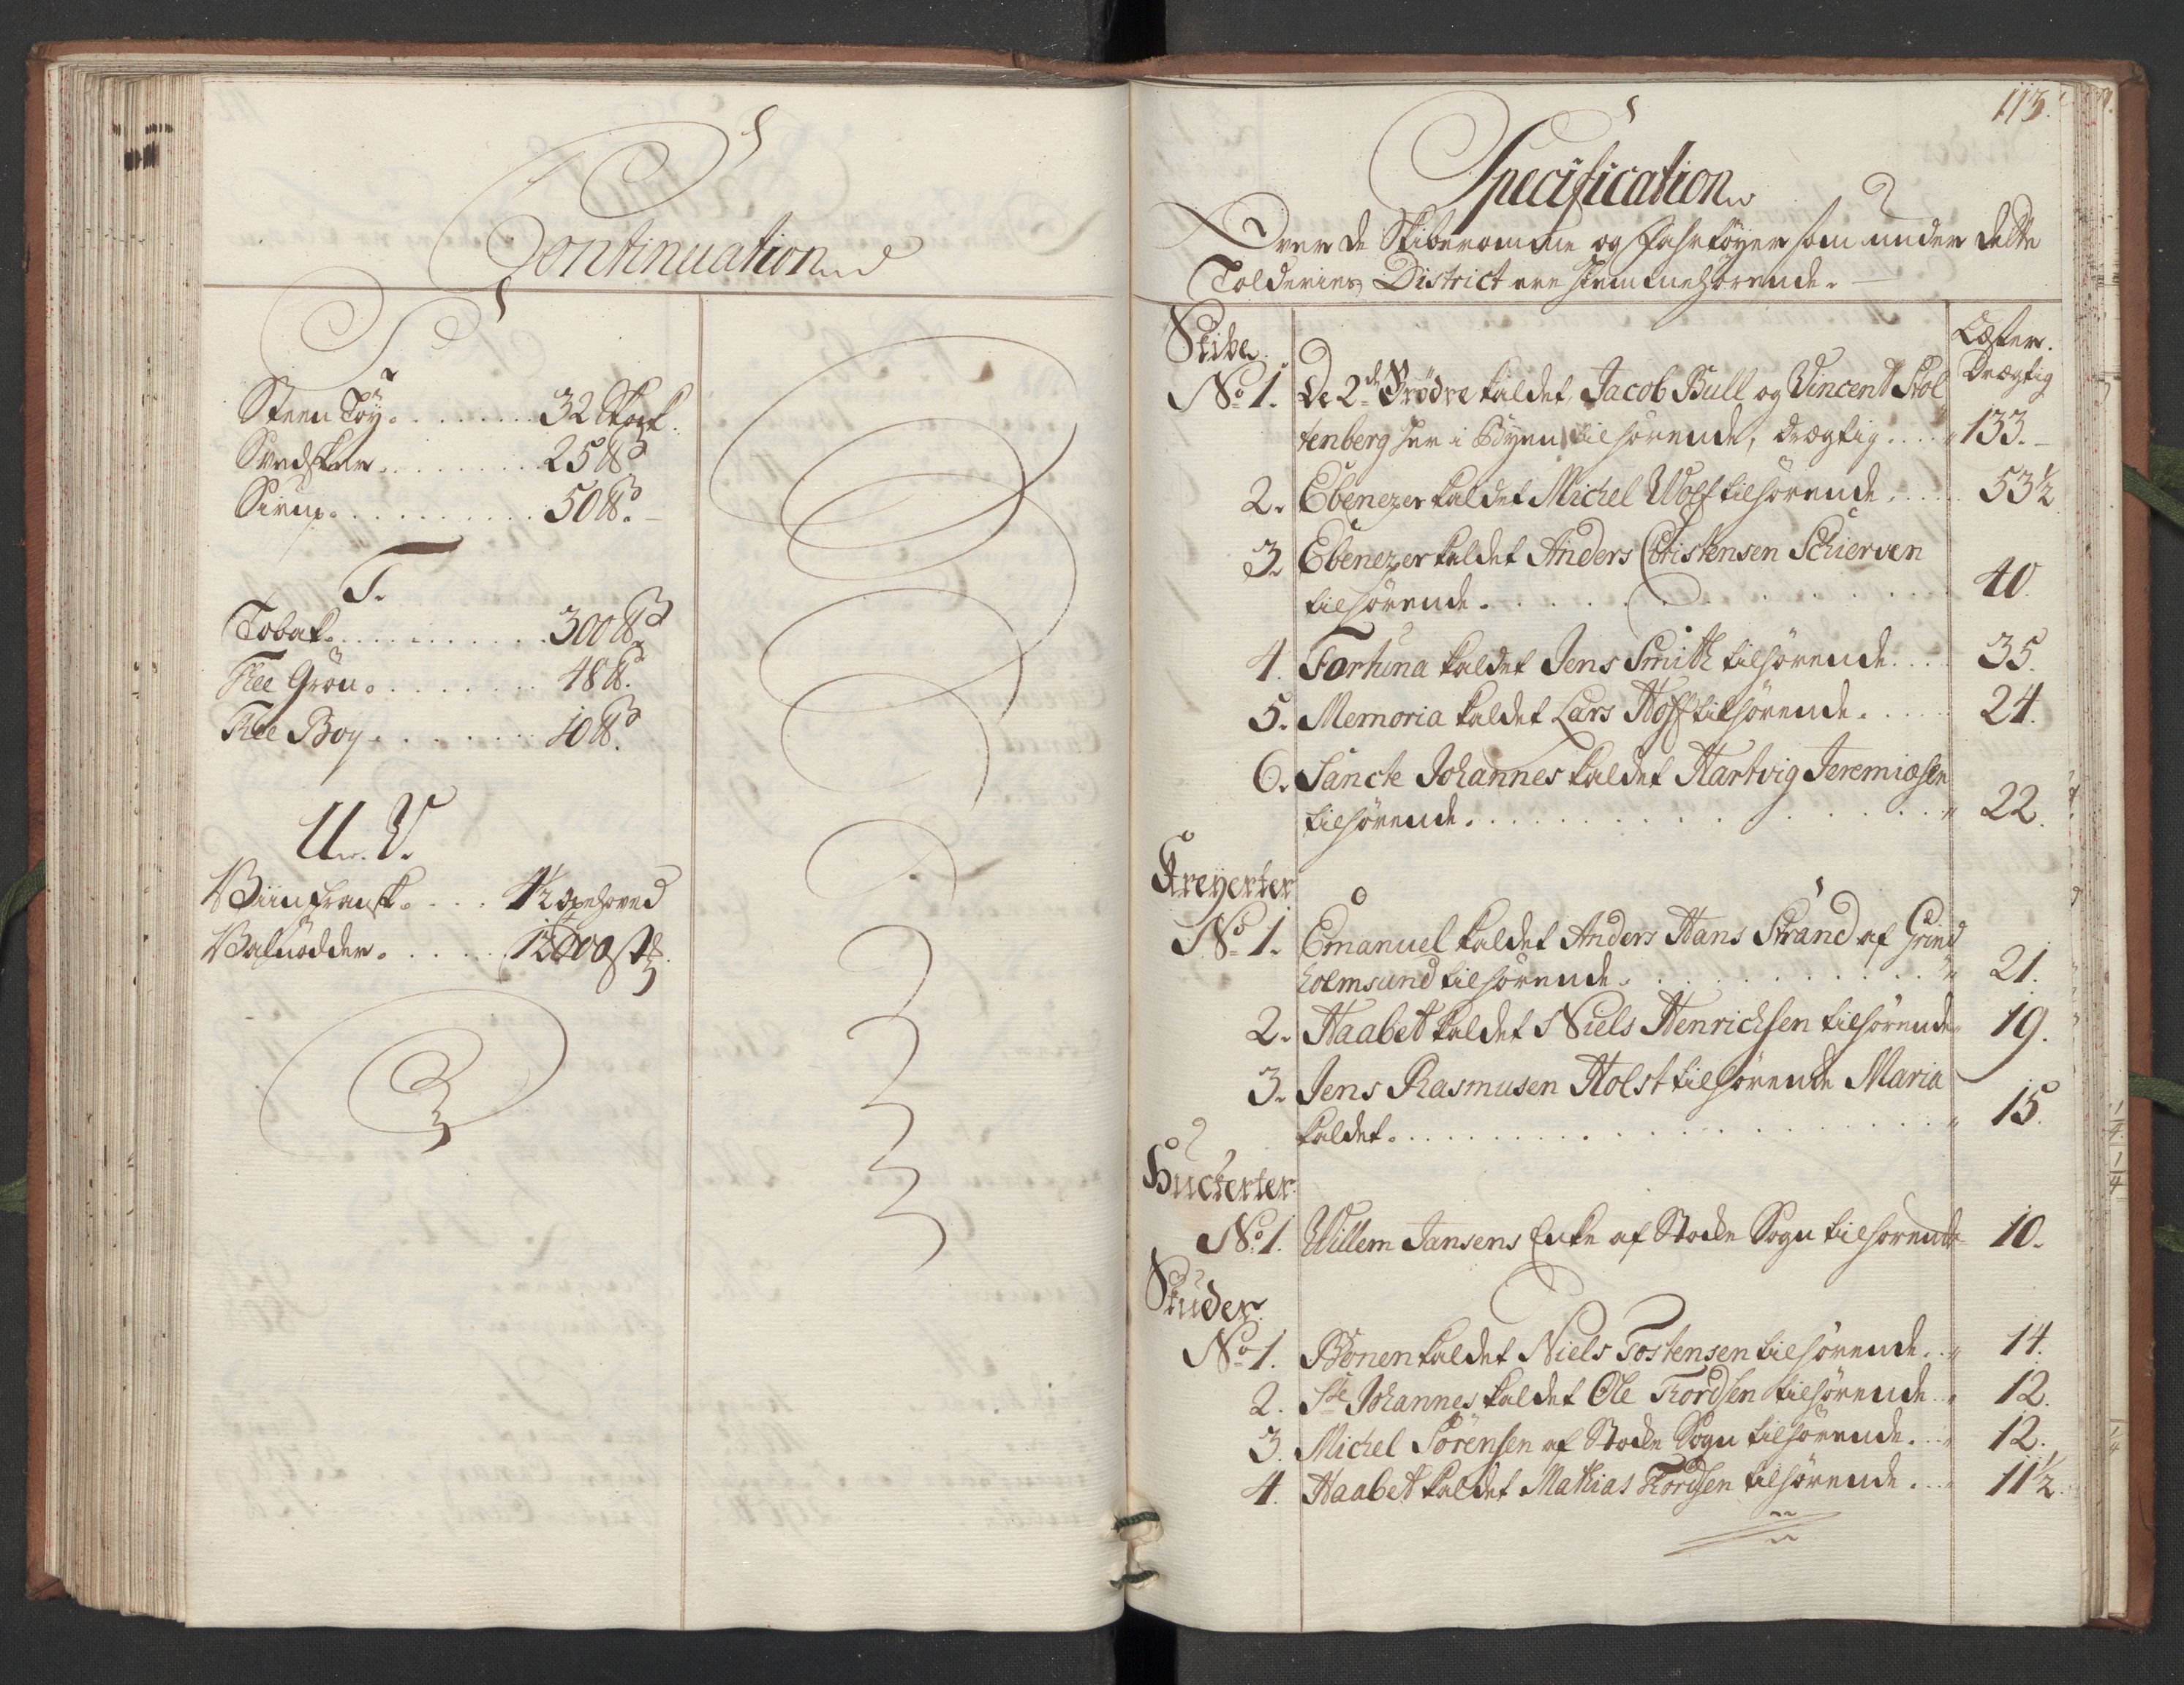 Continuation
S
Steen Töy. 32 Stock.
Svedsker. 25 ℔.
Sirup. 50 ℔.
T.
Tobak. 300 ℔.
Thee Grön. 48 ℔.
Thee Boy. 10 ℔.
U. V.
Viin Fransk. 4½ Oxehoved
Valnödder. 12000 st.
113.
Specification
Over de Skiberomme og Fahrtöyer som under dette
Tolderies District ere hiemmehörende.
Skibe. Læsters.
No 1. De 2de Brödre kaldet, Jacob Bull og Vincent Stol Drægtig
tenberg her i Byen tilhörende, drægtig. 133.
2. Ebenezer kaldet Michel Wolf tilhörende. 53½
3. Ebenezer kaldet Anders Christensen Schierven
tilhörende. 40.
4. Fortuna kaldet Jens Smith tilhörende. 35.
5. Memoria kaldet Lars Hoff tilhörende. 24.
6. Sancte Johannes kaldet Hartvig Jeremiæsen
tilhörende. 22.
Kreyerter
No 1. Emanuel kaldet Anders Hans Strand af Grind
holmsund tilhörende. 21.
2. Haabet kaldet Niels Henrichsen tilhörende 19.
3. Jens Rasmusen Holst tilhörende Maria
kaldet. 15.
Huckerter
No 1. Willem Jansens Enke af Stocke Sogn tilhörende 10.
Skuder.
No 1. Bönen kaldet Niels Tostensen tilhörende. 14.
2. Ste Johannes kaldet Ole Thordsen tilhörende. 12.
3. Michel Sörensen af Stocke Sogn tilhörende. 12.
4. Haabet kaldet Mathias Thordsen tilhörende. 11½